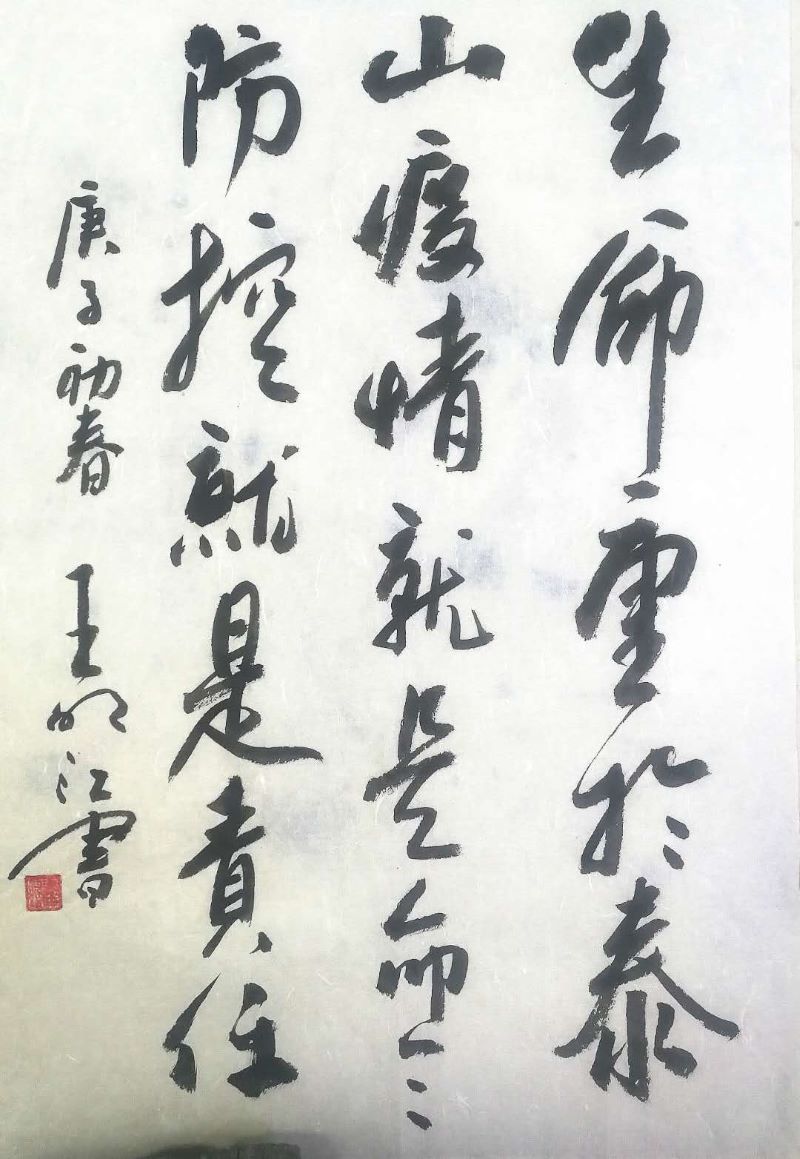 生命重於泰
山疫情就是命令
防控就是責任
庚子初春 王明江書